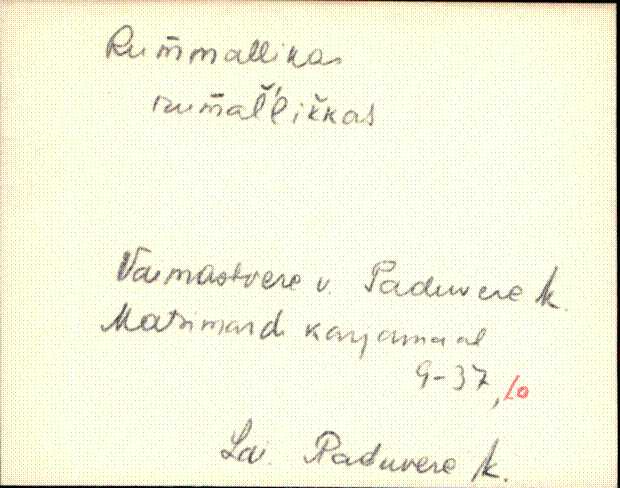 Rum̄mallikas
rum̄al̆'lik̆kas
Vaimastvere v. Paduvere k.
Matsimardi karjamaal
9-37, Lo
Lai. Paduvere k.